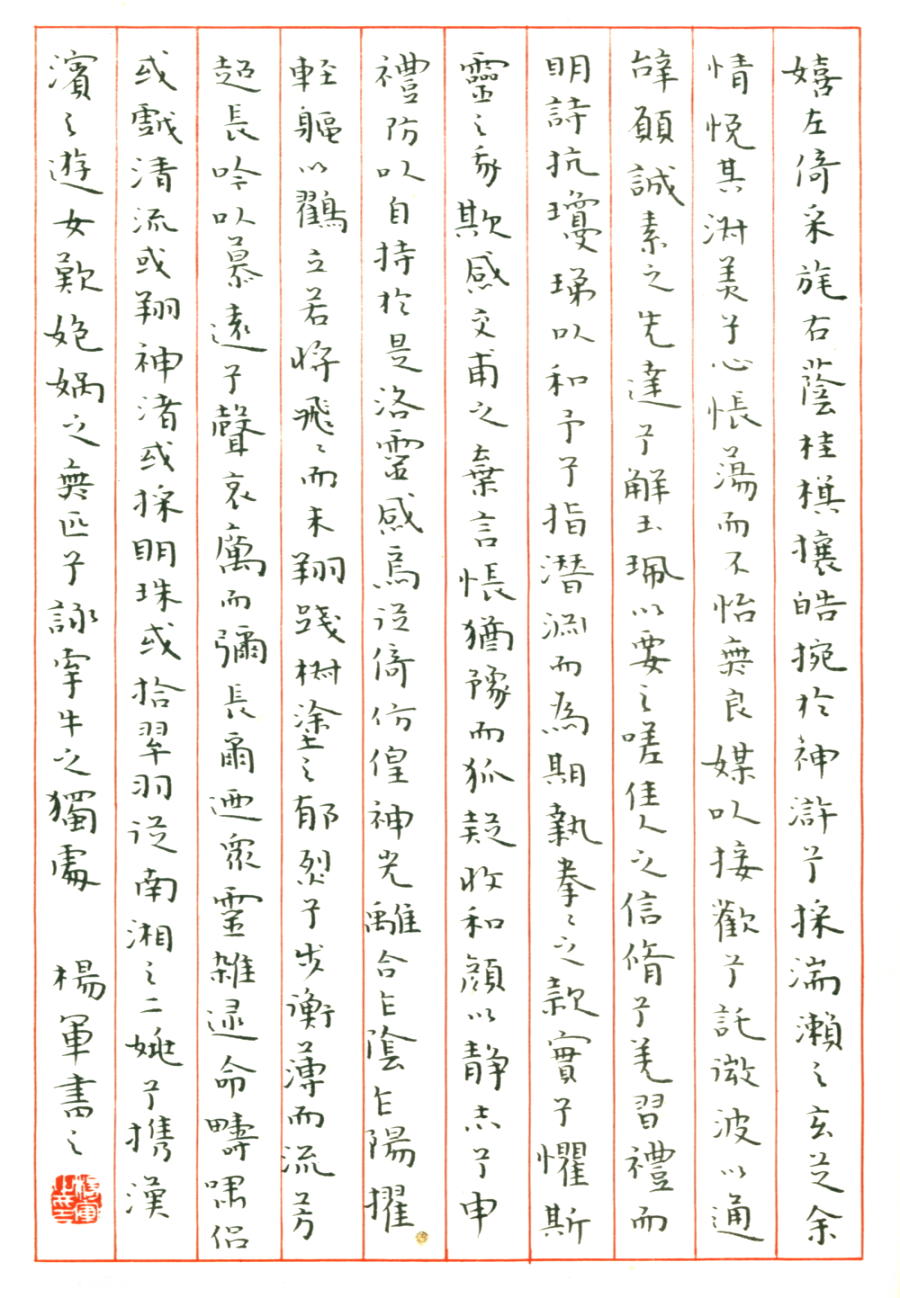 嬉左倚采旄右蔭桂棋攘皓捥於神滸兮採湍瀨之玄芝余
情悅其淑美兮心悵蕩而不怡無良媒以接歡兮託微波以通
辭願誠素之先達兮解玉珮以要之嗟佳人之信脩兮羌習禮而
明詩抗瓊珶以和予兮指潛淵而為期執拳〻之款實兮懼斯
靈之我欺感交甫之棄言悵猶豫而狐疑收和顏以靜志兮申
禮防以自持於是洛靈感焉徙倚仿偟神光離合乍陰乍陽擢
輕軀以鶴立若將飛〻而未翔踐椒塗之郁烈兮步蘅薄而流芳
超長吟以慕遠兮聲哀厲而彌長爾迺眾靈雜遝命疇嘯侶
或戲清流或翔神渚或採明珠或拾翠羽從南湘之二姚兮攜漢
濱之遊女歎媧之無匹兮詠牽牛之獨處 楊軍書之